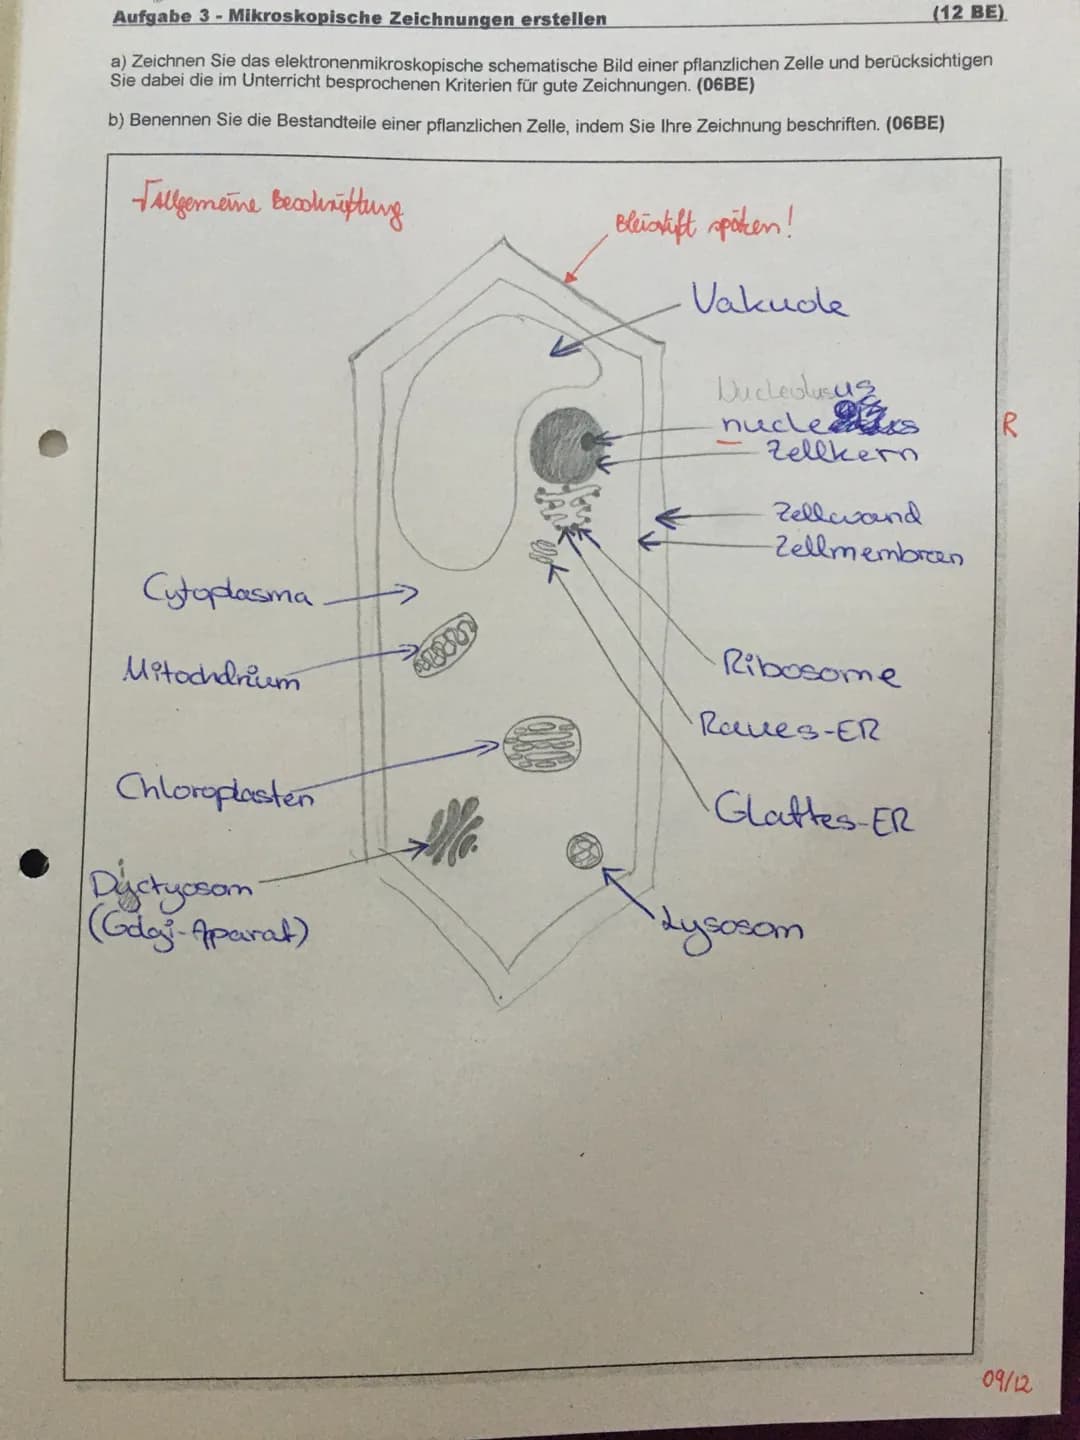 Aufgabe 3 - Mikroskopische Zeichnungen erstellen (12 BE)
a) Zeichnen Sie das elektronenmikroskopische schematische Bild einer pflanzlichen Zelle und berücksichtigen
Sie dabei die im Unterricht besprochenen Kriterien für gute Zeichnungen. (06BE)
b) Benennen Sie die Bestandteile einer pflanzlichen Zelle, indem Sie Ihre Zeichnung beschriften. (06BE)
Allgemeine Beschriftung
Bleistift spitzen!
Vakuole
Zellkern
R
Zellwand
Zellmembran
Cytoplasma
Mitochdrium
Ribosome
Raues-ER
Chloroplasten
Glattes-ER
Dyctyosom
(Golgi-Aparat)
Lysosom
09/12